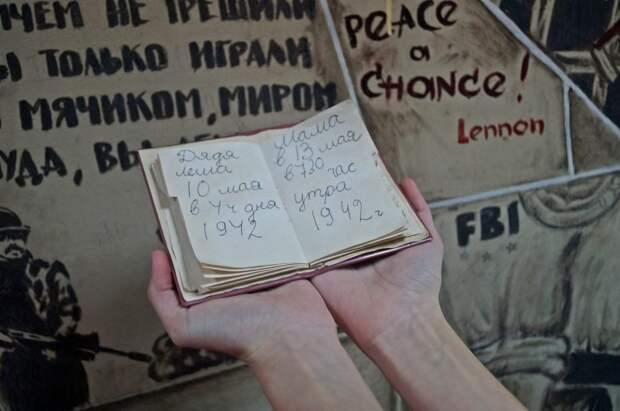 ЧЕМ НЕ ГРЕШИЛИ
Ы ТОЛЬКО ИГРАЛИ
МЯЧИКОМ, МИРОМ
УДА, ВЫ
PEACE
a
CHANCE!
Lennon
FBI
Дядя
леша
10 мая
в 4 ч дня
1942
Мама
в 13 мая
в 730 час
утра
1942 г